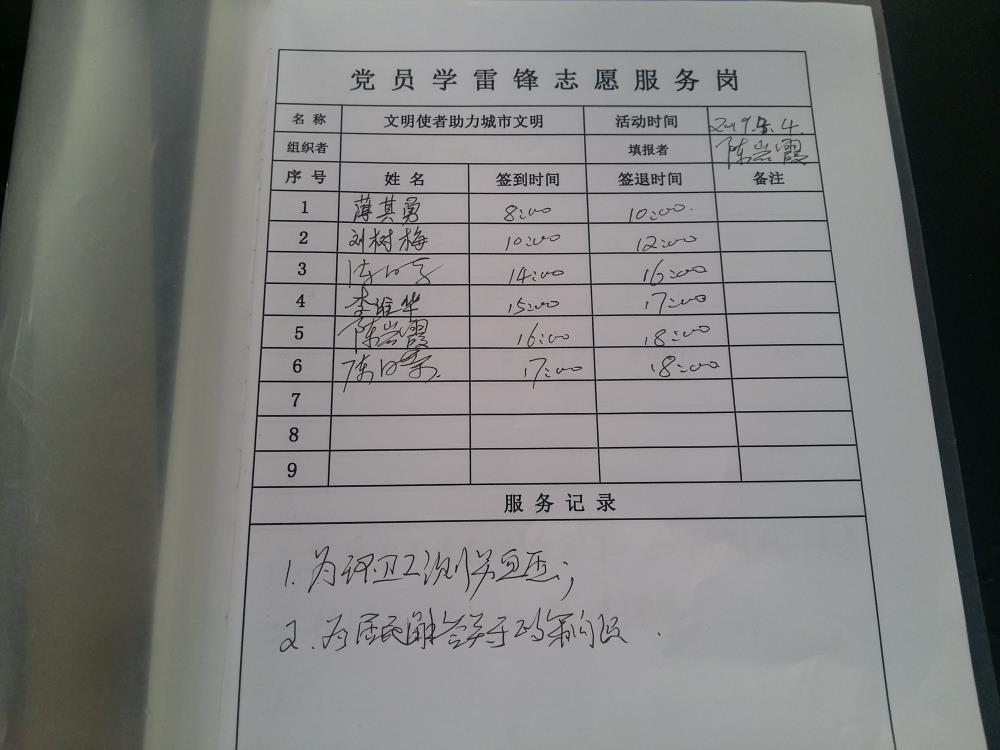 党员学雷锋志愿服务岗
名称 文明使者助力城市文明 活动时间 2019.5.4.
组织者 填报者 陈岩霞
序号 姓名 签到时间 签退时间 备注
1 薄其勇 8:00 10:00.
2 刘树梅 10:00 12:00
3 14:00 16:00
4 李维华 15:00 17:00
5 陈岩霞 16:00 18:00
6 17:00 18:00
7
8
9
服务记录
1.为环卫工测量血压;
2.为居民解答关于